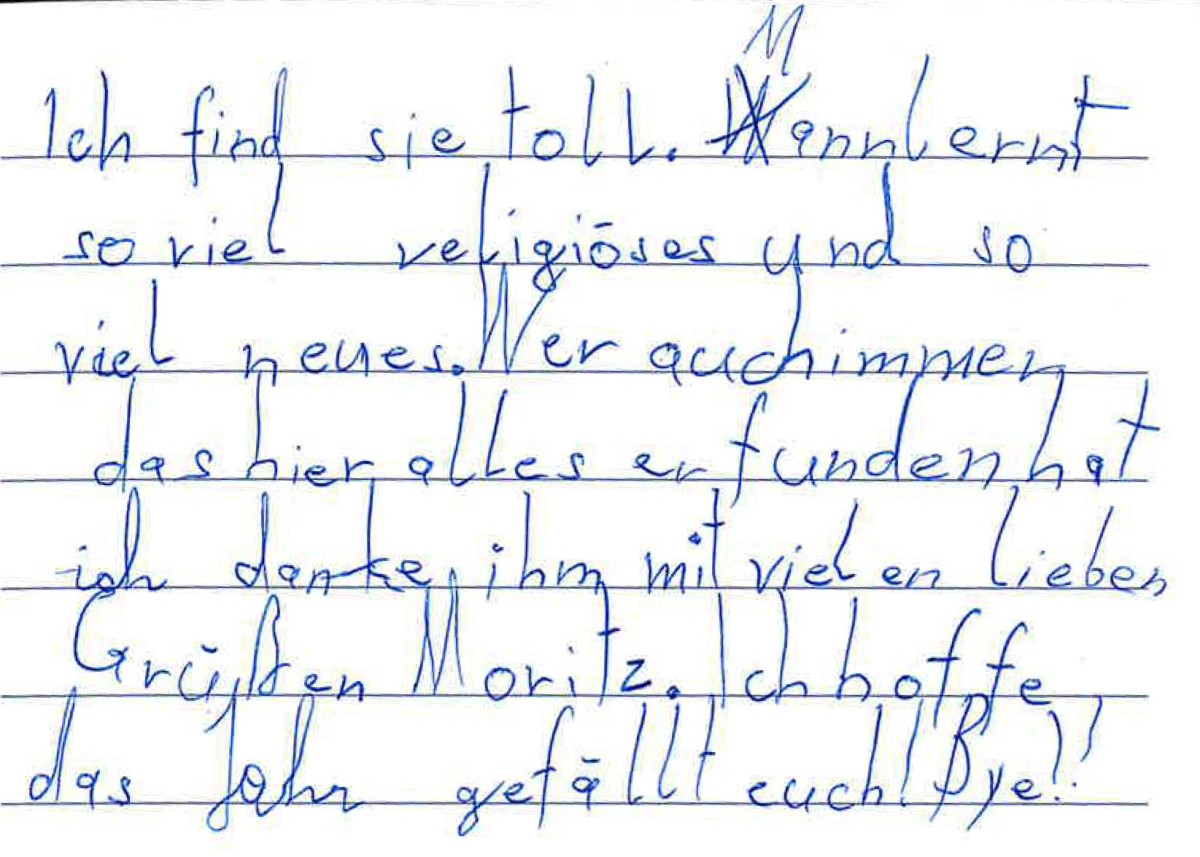 Ich find sie toll. Mann lernt
so viel religiöses und so
viel neues. Wer auch immer
das hier alles erfunden hat
ich danke ihm mit vielen lieben
Grüßen Moritz. Ich hoffe
das Jahr gefällt euch! Bye!!